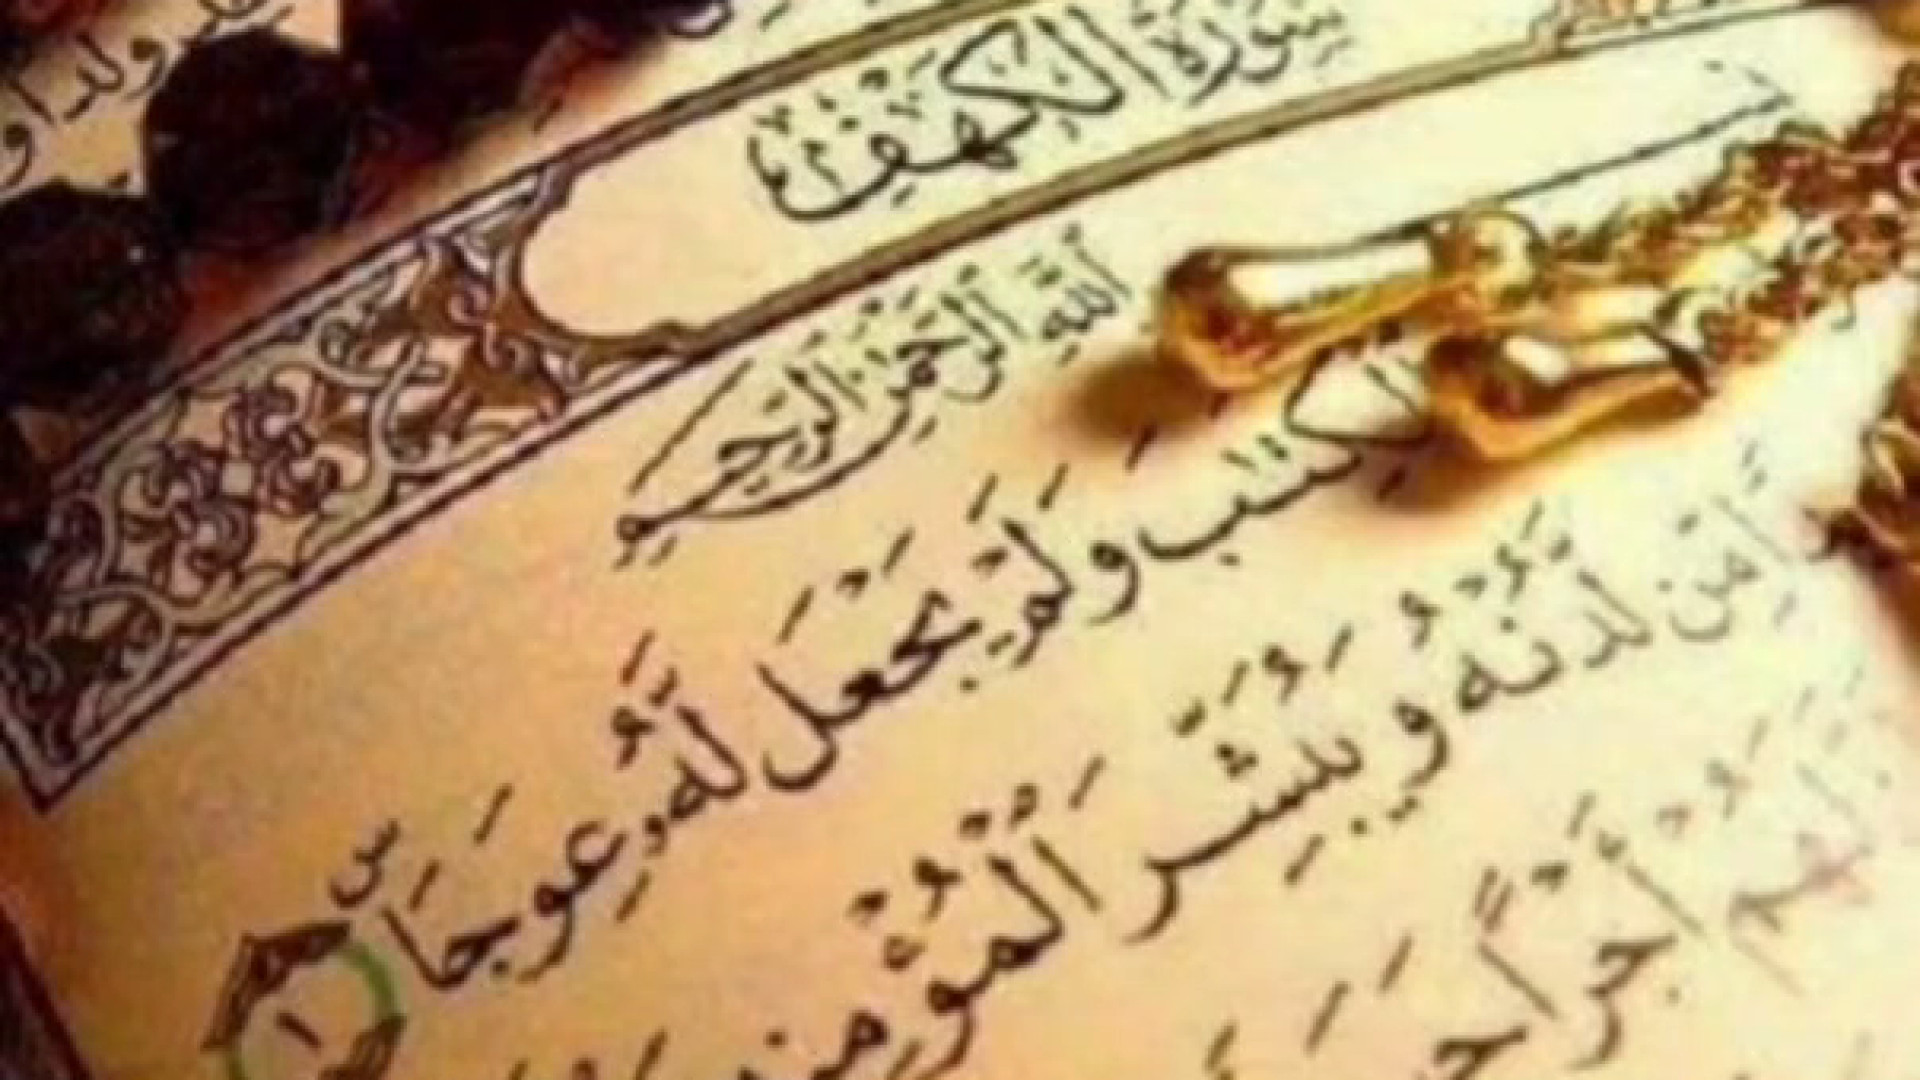 ولدا و
سُورَةُ الكَهْفِ
اللَّهِ الرَّحْمَٰنِ الرَّحِيمِ
الْكِتَٰبَ وَلَمْ يَجْعَل لَّهُۥ عِوَجَاۜ ١
مِّن لَّدُنْهُ وَيُبَشِّرَ الْمُؤْمِنِ
لَهُمْ أَجْرًا حَ